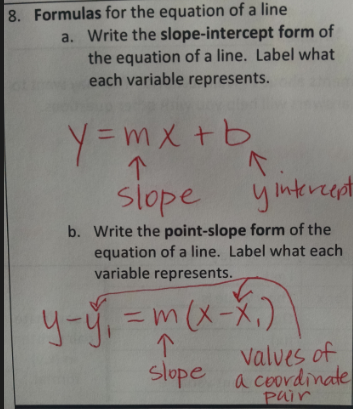 8. Formulas for the equation of a line
a. Write the slope-intercept form of
the equation of a line. Label what
each variable represents.
y = mx + b
slope y intercept
b. Write the point-slope form of the
equation of a line. Label what each
variable represents.
y - y₁ = m(x - x₁)
slope values of
a coordinate
pair